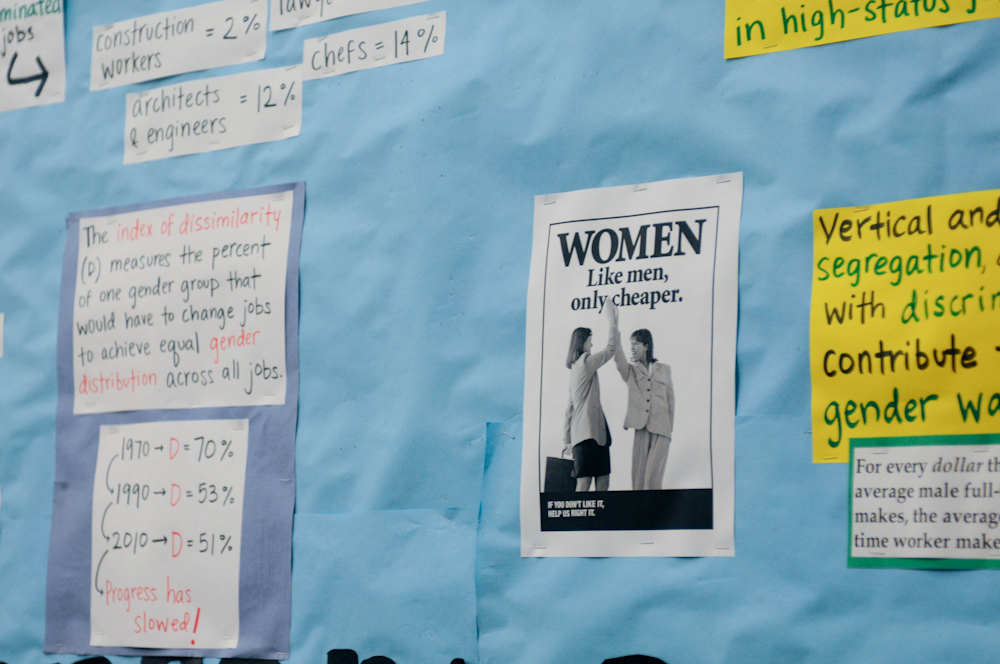 minated
jobs
construction = 2%
workers
chefs = 14%
architects = 12%
& engineers
in high-status
The index of dissimilarity
(D) measures the percent
of one gender group that
would have to change jobs
to achieve equal gender
distribution across all jobs.
1970 → D = 70%
1990 → D = 53%
2010 → D = 51%
Progress has
slowed!
WOMEN
Like men,
only cheaper.
IF YOU DON'T LIKE IT,
HELP US RIGHT IT.
Vertical and
segregation,
with discrim
contribute
gender wa
For every dollar th
average male full-
makes, the average
time worker make